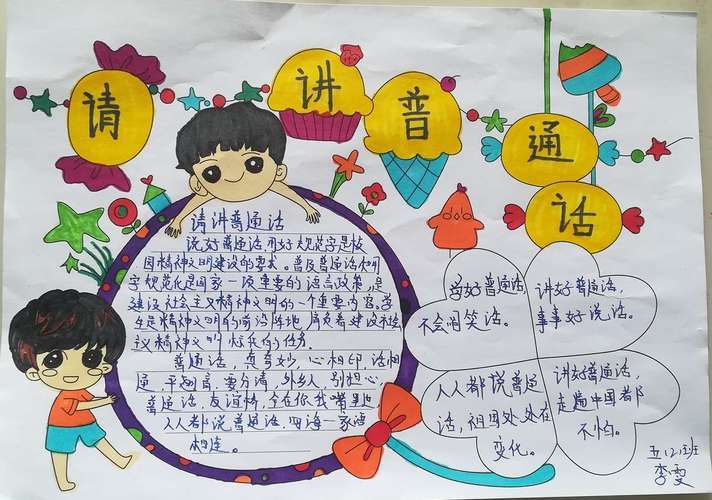 请讲普通话
请讲普通话
说好普通话用好规范字是校
园精神文明建设的要求。普及普通话和用
字规范化是国家一项重要的语言政策,是
建设社会主义精神文明的一个重要内容,学
生是精神文明的前沿阵地,肩负着建设社会
议精神文明
的任务。
普通话,真奇妙,心相印,话相
通,平翘音,要分清,外乡人,别担心
普通话,友谊桥,全在你我嘴里
人人都说普通话,四海一家
相连。
学好普通话,
不会闹笑话。
讲好普通话,
事事好说话。
人人都说普通
话,祖国处处在
变化。
讲好普通话,
走遍中国都
不怕。
五(2)班
李雯